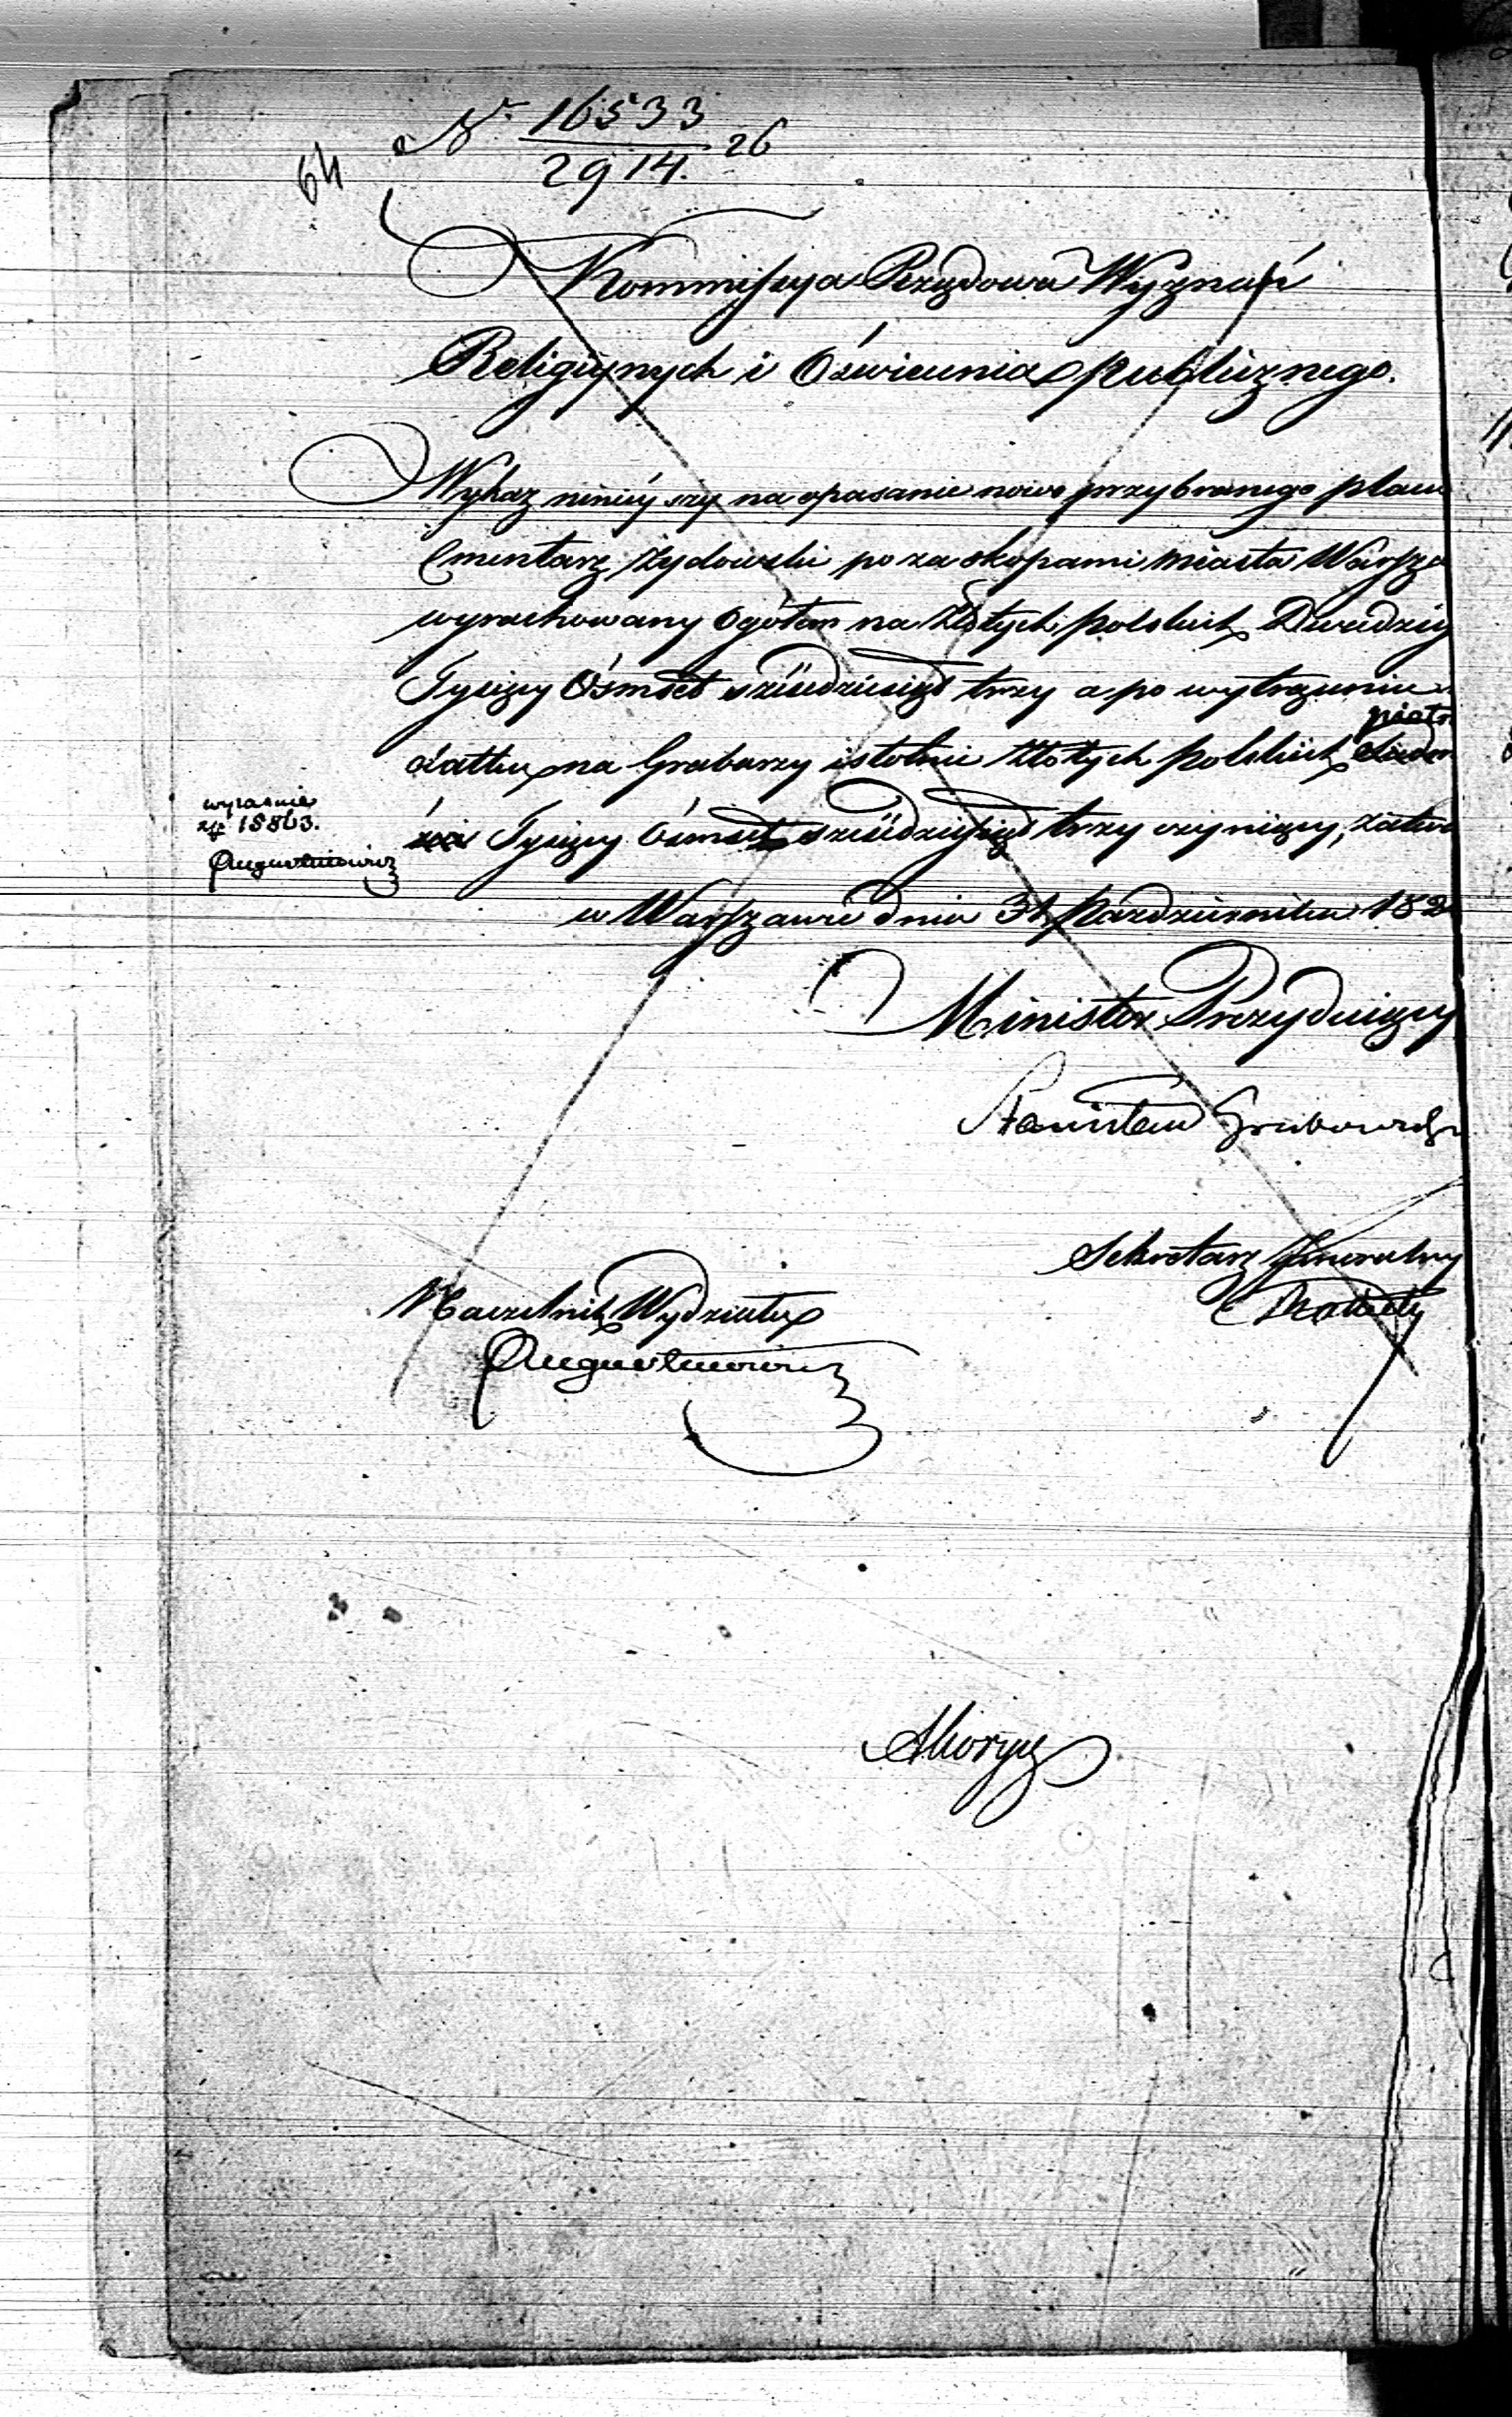 64
Nr 16533
2914. 26
Kommissya Rządowa Wyznań
Religiynych i Oświecenia publicznego.
Wykaz ninieyszy na opasanie nowo przybranego placu
Cmentarz Żydowski po za okopami miasta Warsza
wyrachowany Ogółem na Złotych polskich Dwadzieś
Tysięcy Ósmset sześćdziesiąt trzy a po wytrąceniu
piętn
datku na Grabarzy istotnie Złotych polskich
Tysięcy Ósmset sześćdziesiąt trzy czyniący, zatw
wyraźnie
zł 15863.
Augustinowicz
w Warszawie dnia 31 Października 182
Minister Prezyduiący
Stanisław Grabowski
Sekretarz Generalny
Naczelnik Wydziału
Augustinowicz